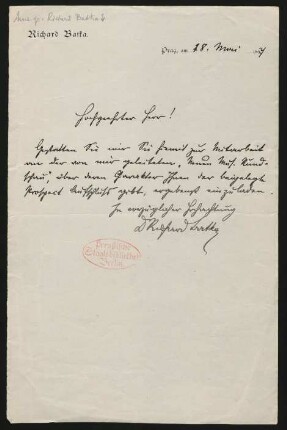 Richard Batka.
Prag, am 28. Mai
Hochgeehrter Herr!
Gestatten Sie mir Sie hiemit zur Mitarbeit
an der von mir geleiteten „Neuen Mus. Rund-
schau“, über deren Charakter Ihnen der beigelegte
Prospect Aufschluß gibt, ergebenst einzuladen.
In vorzüglicher Hochachtung
Dr Richard Batka